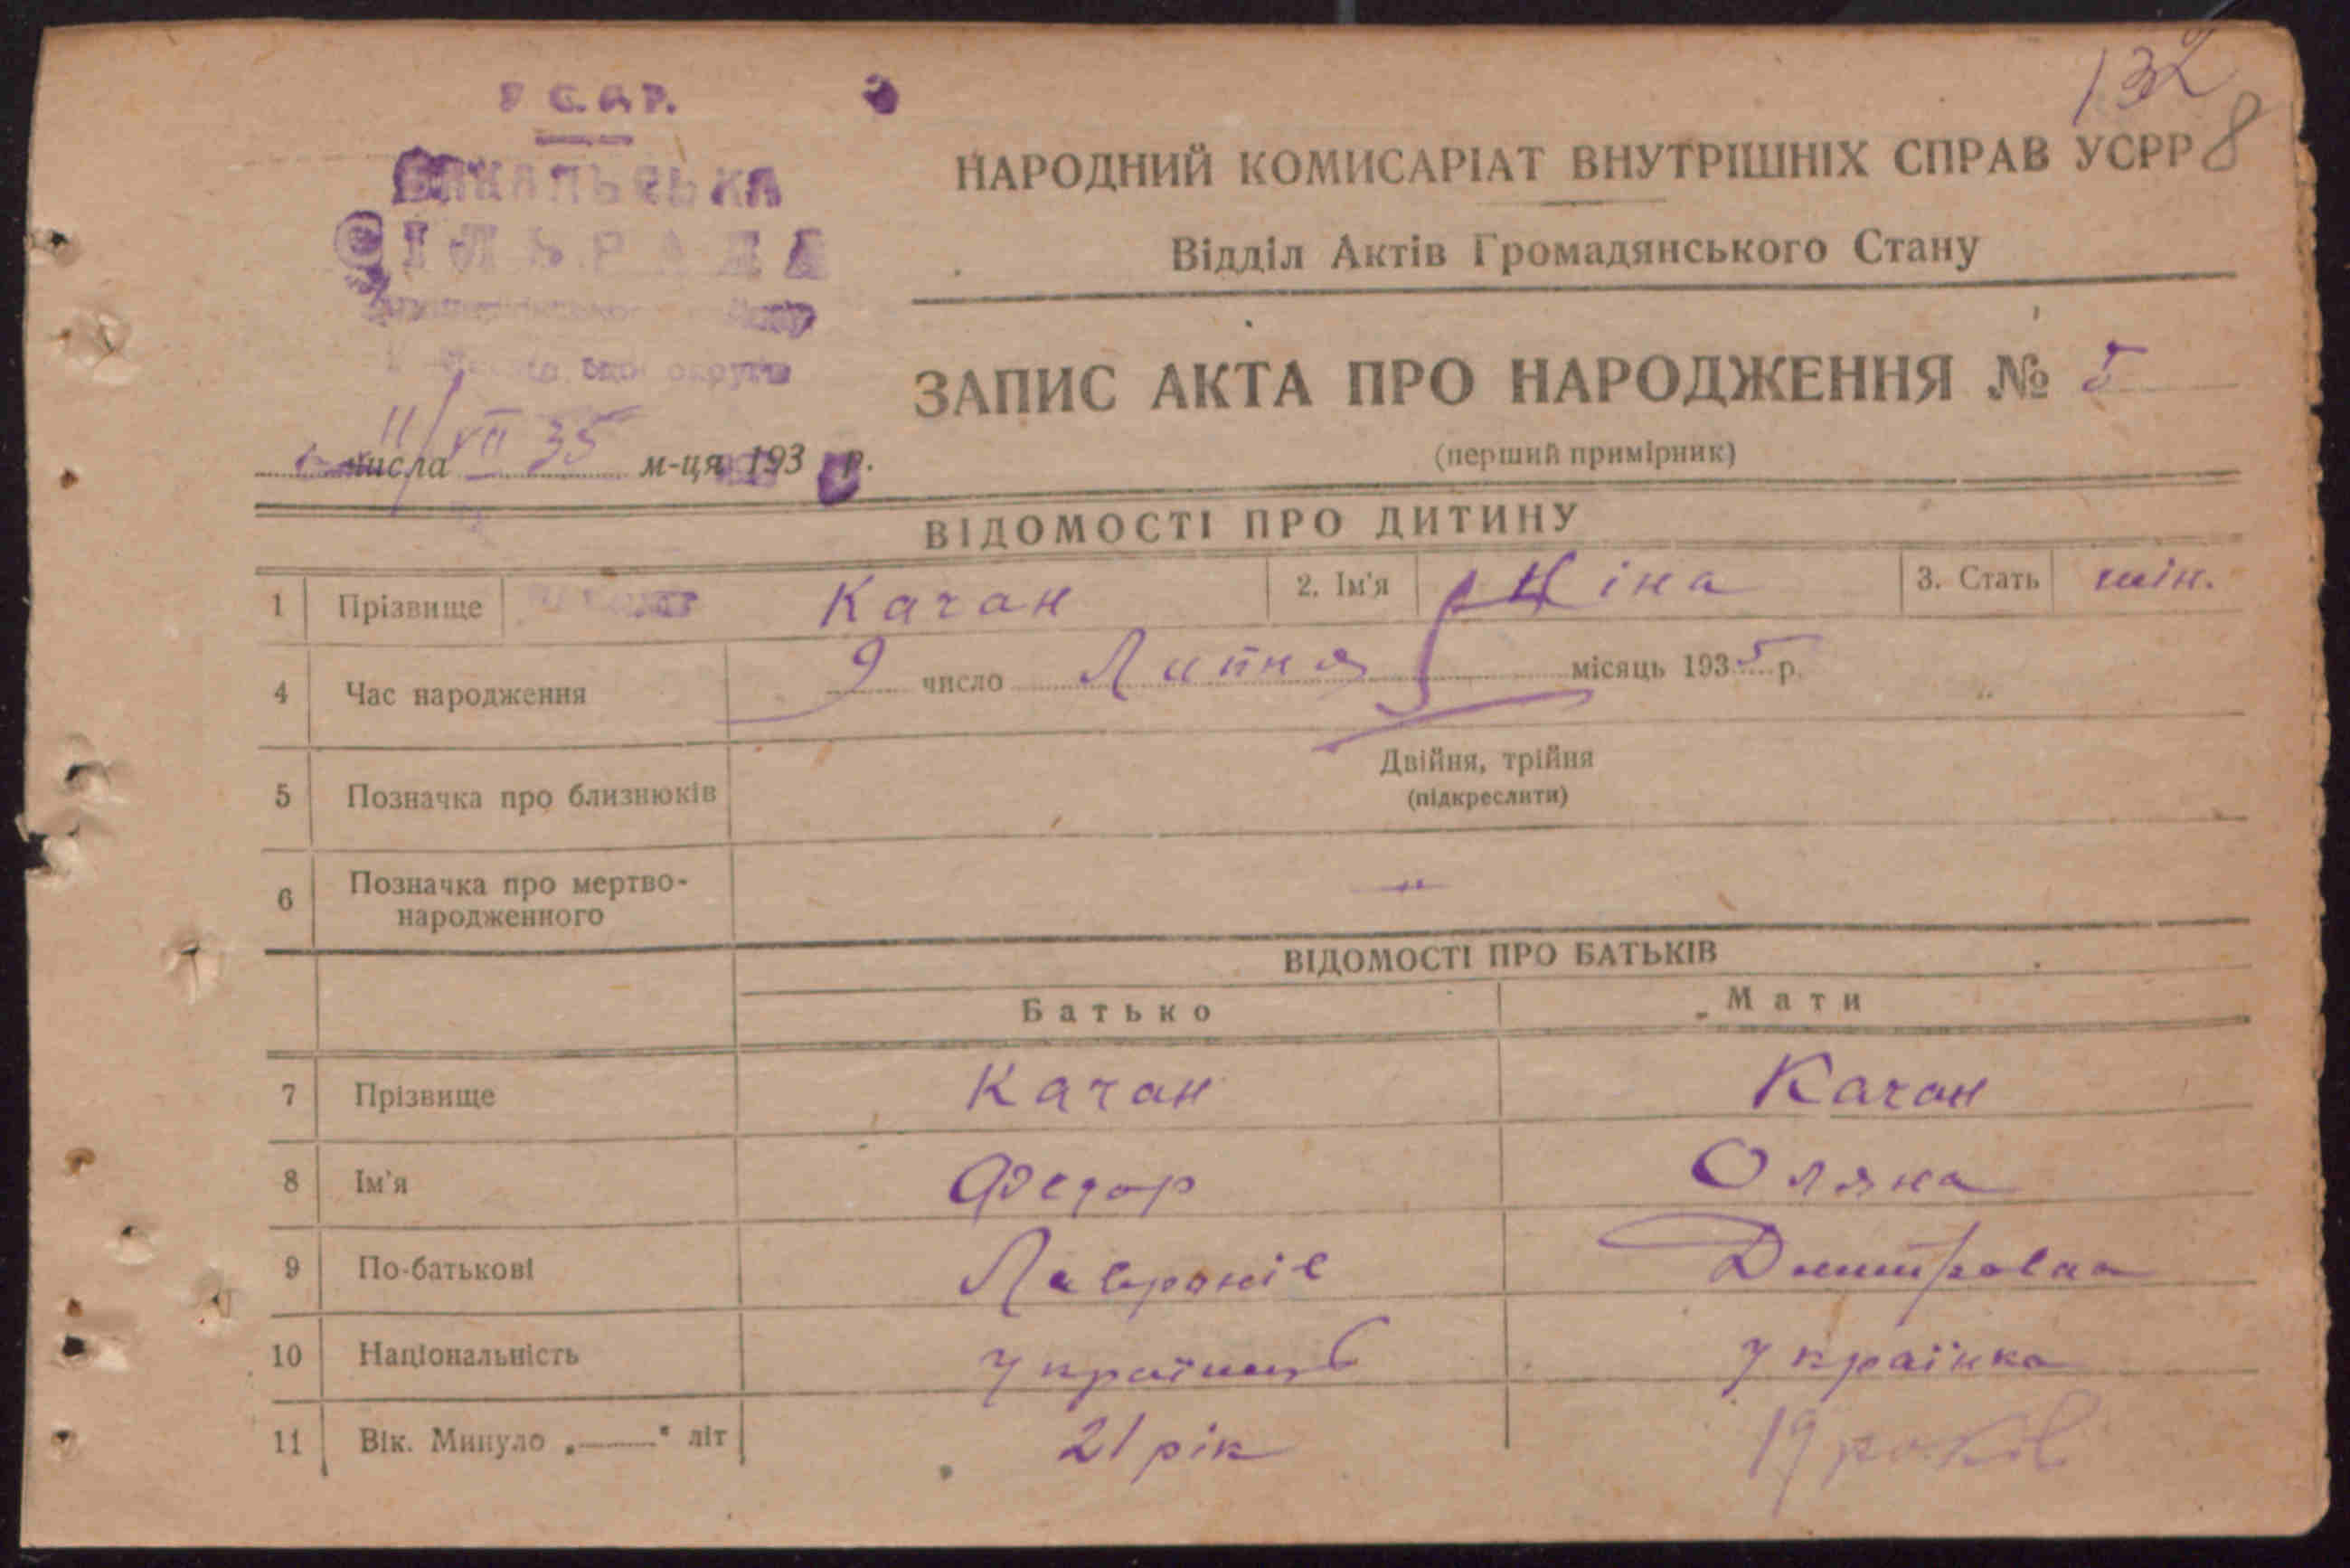 У С.Р.Р.
СІЛЬРАДА
132
8
НАРОДНИЙ КОМИСАРІАТ ВНУТРІШНІХ СПРАВ УСРР
Відділ Актів Громадянського Стану
ЗАПИС АКТА ПРО НАРОДЖЕННЯ № 5
(перший примірник)
11/VII 35
числа м-ця 193 р.
ВІДОМОСТІ ПРО ДИТИНУ
1 Прізвище Качан 2. Ім'я Ніна 3. Стать жін.
4 Час народження 9 число Липня місяць 1935 р.
5 Позначка про близнюків Двійня, трійня
(підкреслити)
6 Позначка про мертво-
народженного
ВІДОМОСТІ ПРО БАТЬКІВ
Батько Мати
7 Прізвище Качан Качан
8 Ім'я Федор Оляна
9 По-батькові Лавронів Дмитровна
10 Національність Українець Українка
11 Вік. Минуло „——" літ 21 рік 19 років